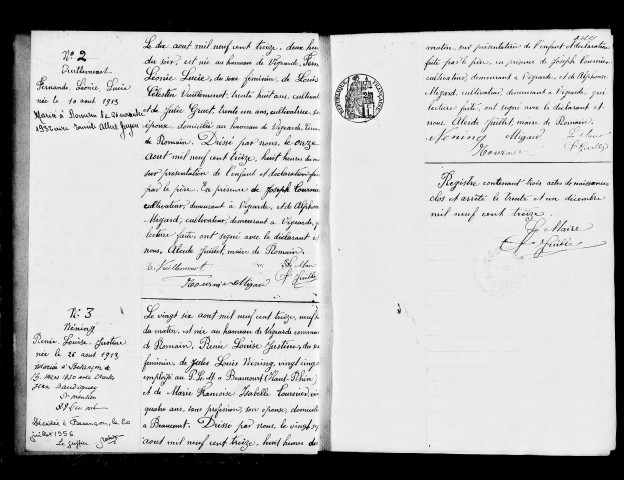 N° 2
Vuillemenot
Fernande Léonie Lucie
née le 10 aout 1913
Mariée à Romain le
1932 avec Albert
Le dix aout mil neuf cent treize, deux heu
du soir, est née au hameau de Vigearde, Fern
Léonie Lucie, du sexe féminin, de Louis
Célestin Vuillemenot, trente huit ans, cultivat
et de Julie Gruet, trente un ans, cultivatrice, so
épouse, domiciliés au hameau de Vigearde, commu
de Romain. Dressé par nous, le onze
aout mil neuf cent treize, huit heures du m
sur présentation de l'enfant et déclaration f
par le père. En présence de Joseph Tournie
cultivateur, demeurant à Vigearde, et de Alphons
Migard, cultivateur, demeurant à Vigearde, q
lecture faite, ont signé avec le déclarant e
nous, Alcide Juillet, maire de Romain.
C. Vuillemenot Le Maire
Tournier Migard Juillet
N° 3
Néning
Renée Louise Justine
née le 26 aout 1913
Mariée à Besançon le
1930 avec Charles
Jean
Pr mention
Décédée à Besançon, le 20
juillet 1956
Le greffier
Le vingt six aout mil neuf cent treize, neuf h
du matin, est née au hameau de Vigearde commun
de Romain, Renée Louise Justine, du se
féminin, de Jules Louis Néning, vingt cinq
employé au P.L.M. à Beaucourt (Haut-Rhin)
et de Marie Françoise Isabelle Tournier, vin
quatre ans, sans profession, son épouse, domicilié
à Beaucourt. Dressé par nous, le vingt se
aout mil neuf cent treize, huit heures du
REPUBLIQUE FRANÇAISE
matin, sur présentation de l'enfant et déclaration
faite par le père, en présence de Joseph Tournier
cultivateur, demeurant à Vigearde, et de Alphonse
Migard, cultivateur, demeurant à Vigearde, qui
lecture faite, ont signé avec le déclarant et
nous, Alcide Juillet, maire de Romain.
Néning Migard Le Maire
Tournier Juillet
Registre contenant trois actes de naissances
clos et arrêté le trente et un décembre
mil neuf cent treize.
Le Maire
Juillet